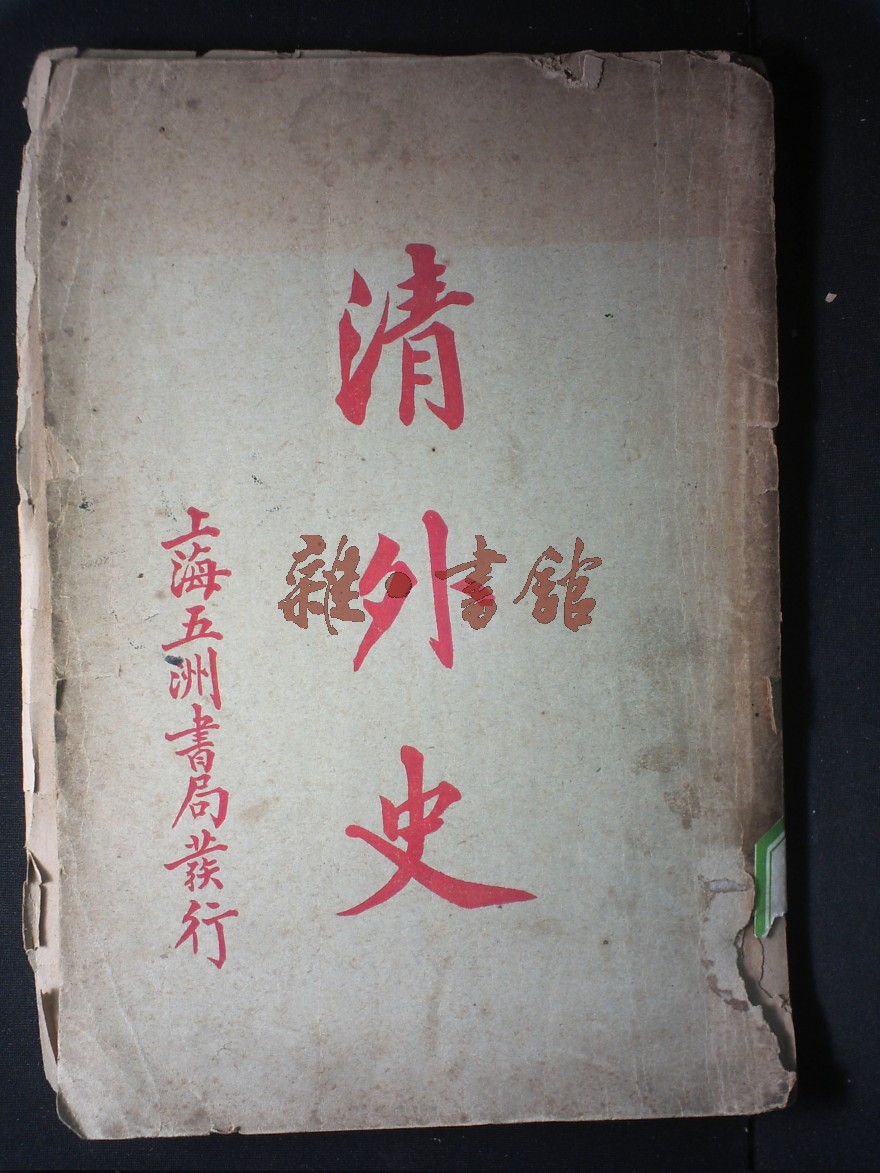 清外史
上海五洲書局發行
雜·書館